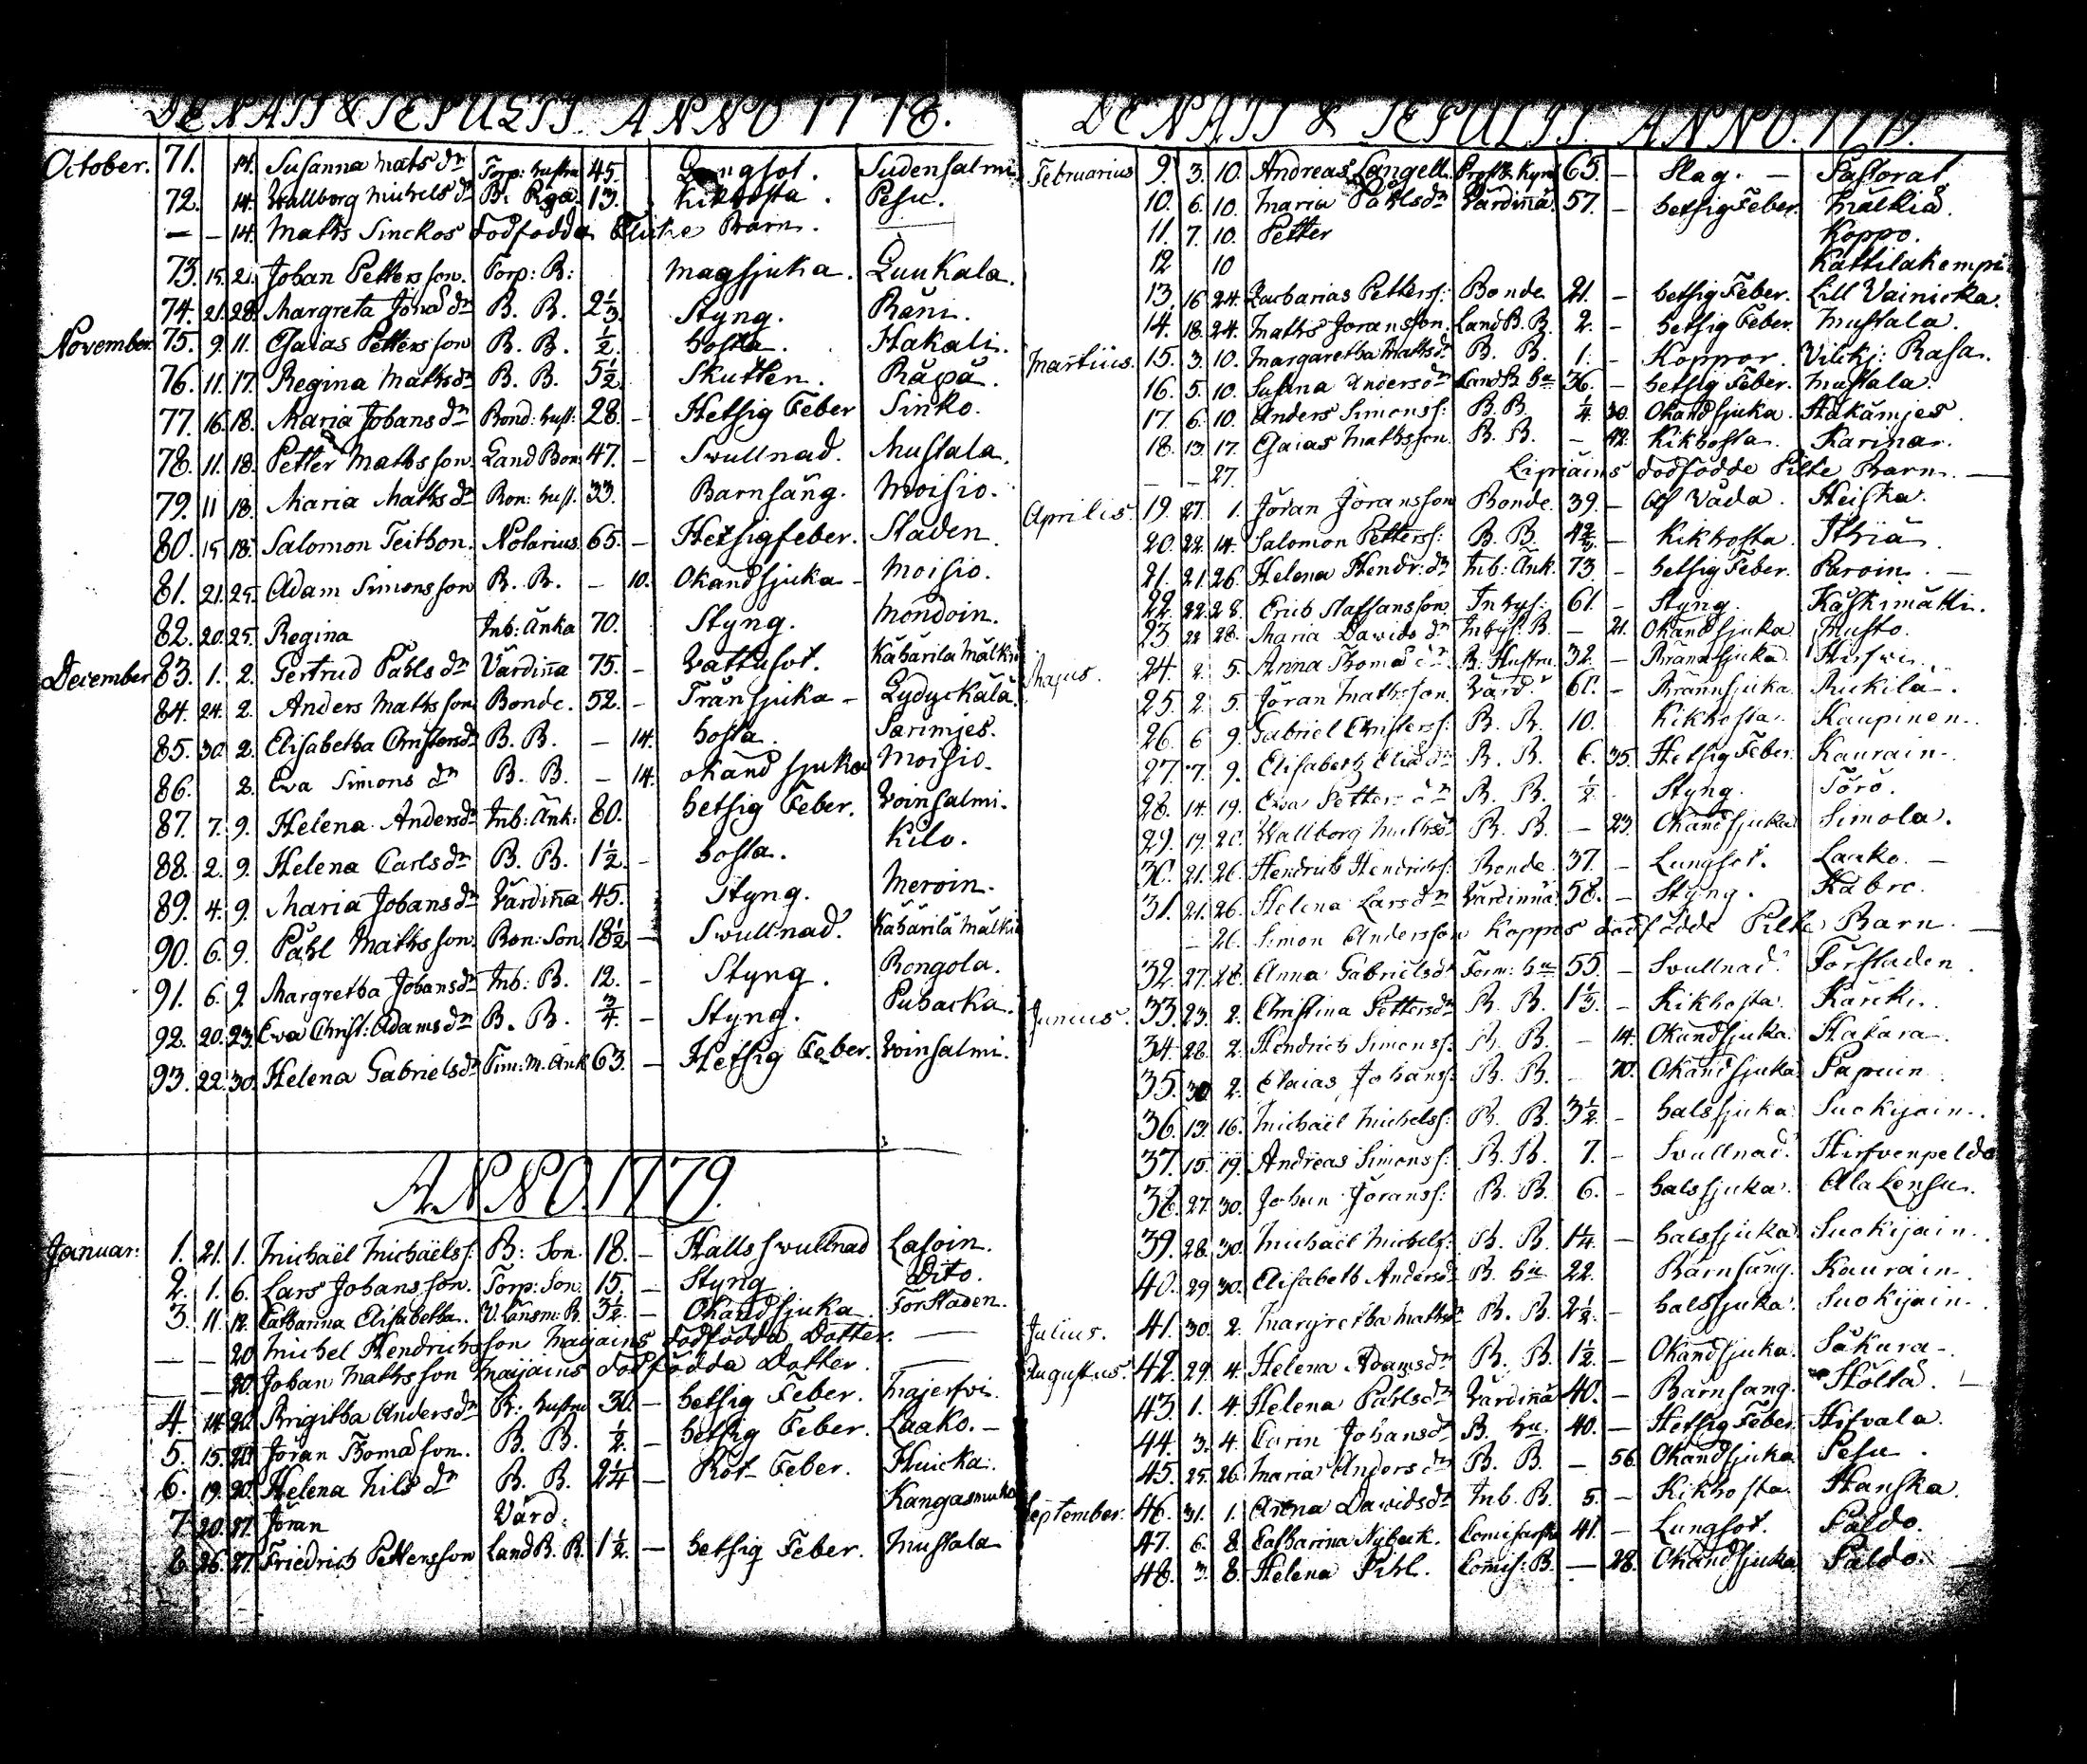 DENATI & SEPULTI ANNO 1778.
October. 71. 14. Susanna Mats dr Torp: hustru 45. Lungsot. Sudensalmi
72. 14. Wallborg Michels dr B. Piga. 13. Kikhosta. Pesu.
— — 14. Matts Sinckos dödfödda Flicke Barn.
73. 15. 21. Johan Pettersson. Torp: B: Magsjuka. Luukala.
74. 21. 28. Margreta Jöra dr B. B. 2 1/3. Styng. Räni.
November. 75. 9. 11. Esaias Pettersson B. B. 1/2. hosta. Hakali.
76. 11. 17. Regina Mathsdr B. B. 5 1/2 Skutten. Räpä.
77. 16. 18. Maria Johans dr Bond: hust: 28. – Hetsig Feber Sinko.
78. 11. 18. Petter Mathsson. Land Bon: 47. – Swullnad. Mustala.
79. 11 18. Maria Maths dr Bon: hust. 33. Barnsäng. Moisio.
80. 15 18. Salomon Teithon. Notarius. 65. – Hetsigfeber. Staden.
81. 21. 25. Adam Simonsson B. B. – 10. Okänd sjuka – Moisio.
82. 20. 25. Regina Inh: Änka 70. Styng. Mondoin.
December 83. 1. 2. Gertrud Påhls dr Värdiña 75. – Vattusot. Kähärilä Mälkiä
84. 24. 2. Anders Mathsson Bonde. 52. – Trånsjuka – Lydyckälä.
85. 30. 2. Elisabetha Christersdr B. B. – 14. hosta. Särimjes.
86. 2. Eva Simons dr B. B. – 14. okänd sjuka Moisio.
87. 7. 9. Helena Andersdr Inh: Änk: 80. hetsig Feber. Voinsalmi.
88. 2. 9. Helena Carlsdr B. B. 1 1/2. – hosta. Kilo.
89. 4. 9. Maria Johansdr Värdiña 45. Styng. Meroin.
90. 6. 9. Påhl Mathsson Bon: Son 18 1/2 – Swullnad. Kähärilä Mälkiä
91. 6. 9. Margretha Johansdr Inh: B. 12. – Styng. Rongola.
92. 20. 23. Eva Christ: Adamsdr B. B. 3/4. – Styng. Puhacka.
93. 22. 30. Helena Gabrielsdr Tim: M. Änk 63. – Hetsig Feber. Voinsalmi.
ANNO 1779.
Januar: 1. 21. 1. Michaël Michaëlss: B: Son. 18. – Halls swullnad Lasoin.
2. 1. 6. Lars Johansson. Torp: Son. 15. – Styng Dito.
3. 11. 12. Catharina Elisabetha. V. Länsm: B. 3 1/2. – Okänd sjuka. Förstaden.
— — 20 Michel Hendrichsson Maijains dödfödda Dotter.
— — 20. Johan Mathsson Maijains dödfödda Dotter.
4. 14. 20. Brigitha Andersdr B: hustru 30. – hetsig Feber. Majersvi.
5. 15. 20. Jöran Thomasson. B. B. 1/2. – hetsig Feber. Laako. –
6. 19. 20. Helena Nils dr B. B. 2 1/4 – Röt Feber. Huicka.
7. 20. 27. Jöran Värd: Kangasmuko
8. 26. 27. Friedrich Pettersson Land B. B. 1 1/2. – hetsig Feber. Mustala
DENATI & SEPULTI. ANNO. 1779.
Februarius 9. 3. 10. Andreas Langell. 65. – Slag. – Pastorat.
10. 6. 10. Maria Påhlsdr Värdiña. 57. – hetsig Feber. Mälkiä.
11. 7. 10. Petter Koppo.
12 10 Kattilakempi
13. 16 24. Zacharias Petterss: Bonde 21. – hetsig Feber. Lill Vainicka.
14. 18. 24. Maths Joransson. Land B. B. 2. – hetsig Feber. Mustala.
Martius. 15. 3. 10. Margaretha Mattsdr B. B. 1. – Koppor. Vilckj: Rasa.
16. 5. 10. Susana Andersdr Land B. hu 36. – hetsig Feber. Mustala.
17. 6. 10. Anders Simonss: B. B. 1/4 30. Okänd sjuka. Hakämjes.
18. 13. 17. Esaias Mathsson. B. B. – 42. Kikhosta. Karinar.
– – 27. Lipiäins dödfödde Pilte Barn. —
Aprilis. 19. 27. 1. Jöran Joransson Bonde. 39. – Af Våda. Heiska.
20. 22. 14. Salomon Petterss: B. B. – Kikhosta. Ithiä.
21. 21. 26. Helena Hendr: dr Inh: Änk. 73. – hetsig Feber. Paroin. –
22. 22. 28. Erich Staffansson. Inhys: 61. – Styng. Käskimätti.
23 28. Maria Davids dr Inhys: B. – 21. Okänd sjuka Musto.
Majus. 24. 2. 5. Anna Thomas dr B. Hustru. 32. – Bränsjuka. Hirfwi.
25. 2. 5. Jöran Mathsson. Värd. 61. – Brännsjuka. Ruckila.
26. 6 9. Gabriel Christerss: B. B. 10. Kikhosta. Kaupinen.
27. 7. 9. Elisabeth Elia dr B. B. 6. 35. Hetsig Feber. Kaurain.
28. 14. 19. Eva Petters dr B. B. 1/2 – Styng. Törö.
29. 19. 26. Wallborg Mathsdr B. B. – 23. Okänd sjuka Simola.
30. 21. 26. Hendrich Hendrichss: Bonde. 37. – Lungsot. Laako. –
31. 21. 26. Helena Larsdr Värdinna. 58. – Styng. Kabro.
– 26. Simon Andersson Koppos dödfödde Pilte Barn. –
32. 27. 28. Anna Gabrielsdr Form: hu 55. – Svullnad. Förstaden.
Junius. 33. 23. 2. Christina Pettersdr B. B. 1 1/3. – Kikhosta. Kärcki.
34. 28. 2. Hendrich Simonss: B. B. – 14. Okänd sjuka. Hakara.
35. 30. 2. Elaias Johanss: B. B. 70. Okänd sjuka. Papuin.
36. 13. 16. Michaël Michelss: B. B. 3 1/2. – halssjuka. Suckijain.
37. 15. 19. Andreas Simonss: B. B. 7. – Svullnad. Hirfvenpeldo
38. 27. 30. Johan Jöranss: B. B. 6. – halssjuka. Alakensu.
39. 28. 30. Michaël Michelss: B. B. 1 1/4. – halssjuka. Suckijain.
40. 29 30. Elisabeth Andersdr B. hu 22. Barnsäng. Kaurain.
Julius. 41. 30. 2. Margretha Mathsdr B. B. 2 1/2. – halssjuka. Suokijain.
Augustus. 42. 29. 4. Helena Adamsdr B. B. 1 1/2. – Okänd sjuka. Säkura.
43. 1. 4. Helena Påhlsdr Värdiña 40. – Barnsäng. Höltä. –
44. 3. 4. Carin Johansdr B. hu. 40. – Hetsig Feber. Hifvala.
45. 25. 26. Maria Anders dr B. B. – 56. Okänd sjuka Pesu.
September. 46. 31. 1. Anna Davidsdr Inh. B. 5. – Kikhosta. Hanska.
47. 6. 8. Catharina Nybeck. 41. – Lungsot. Paldo.
48. 3. 8. Helena Pihl. Comis: B. – 28. Okänd sjuka. Paldo.